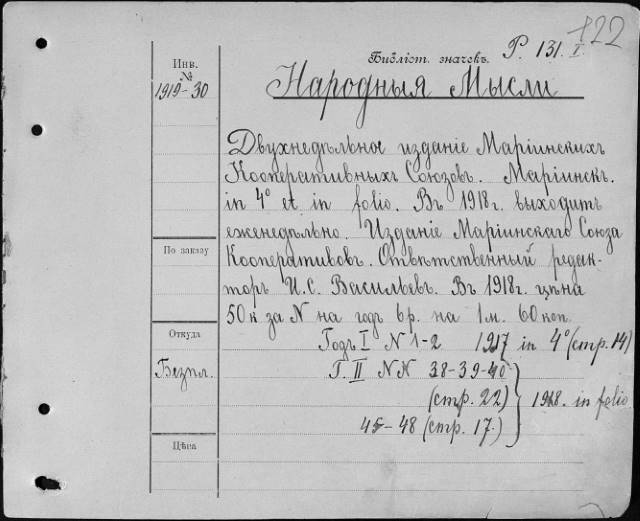 122
Библіот. значекъ. P. 131. I.
Инв.
№
1919-30
Народныя Мысли
Двухнедѣльное изданіе Маріинскихъ
Кооперативныхъ Союзовъ. Маріинскъ.
in 4° et in folio. Въ 1918 г. выходитъ
еженедѣльно. Изданіе Маріинскаго Союза
По заказу
Кооперативовъ. Отвѣтственный редак-
торъ И.С. Васильевъ. Въ 1918 г. цѣна
50 к за N на годъ 6 р. на 1 м. 60 коп.
Откуда
Безпл.
Годъ I N 1-2 1917 in 4° (стр. 14)
Г. II NN 38-39-40
(стр. 22) 1918. in folio
45-48 (стр. 17.)
Цѣна